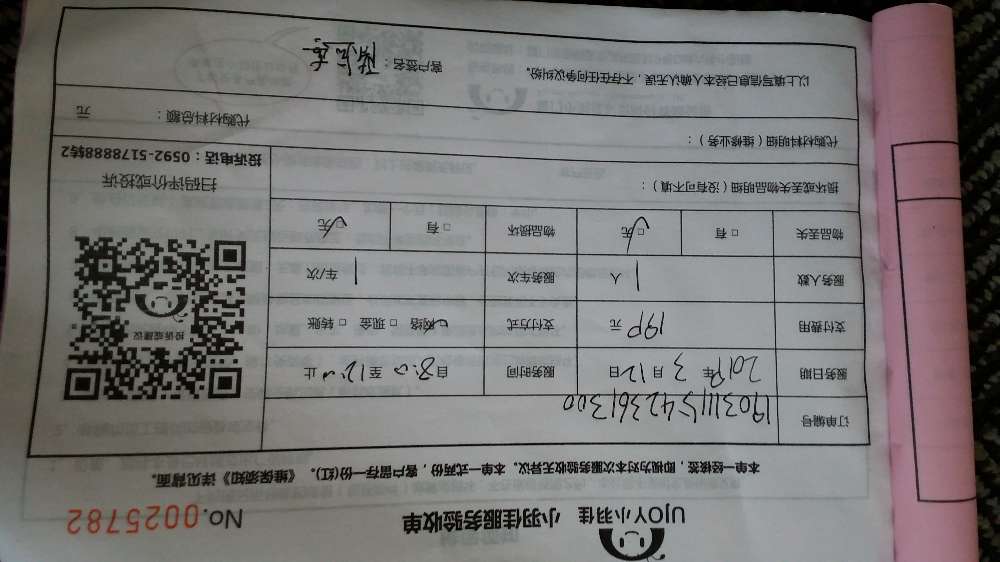 UJOY小羽佳 小羽佳服务验收单 No.0025782
本单一经接签,即视为对本次服务验收无异议。本单一式两份,客户留存一份(红)。《维保须知》详见背面。
订单编号 19031115423661300
服务日期 2019年3月12日 服务时间 自8:00至12:00止
支付费用 199元 支付方式 网络 □现金 □转账
服务人数 1人 服务车次 1车/次
物品丢失 □有 □无 物品损坏 □有 □无
损坏或丢失物品明细(没有可不填):
代购材料明细(维修业务):
代购材料总额: 元
以上填写信息已经本人确认无误,不存在任何争议纠纷。
客户签名:
投诉或建议
扫码评价或投诉
投诉电话:0592-5178888转2